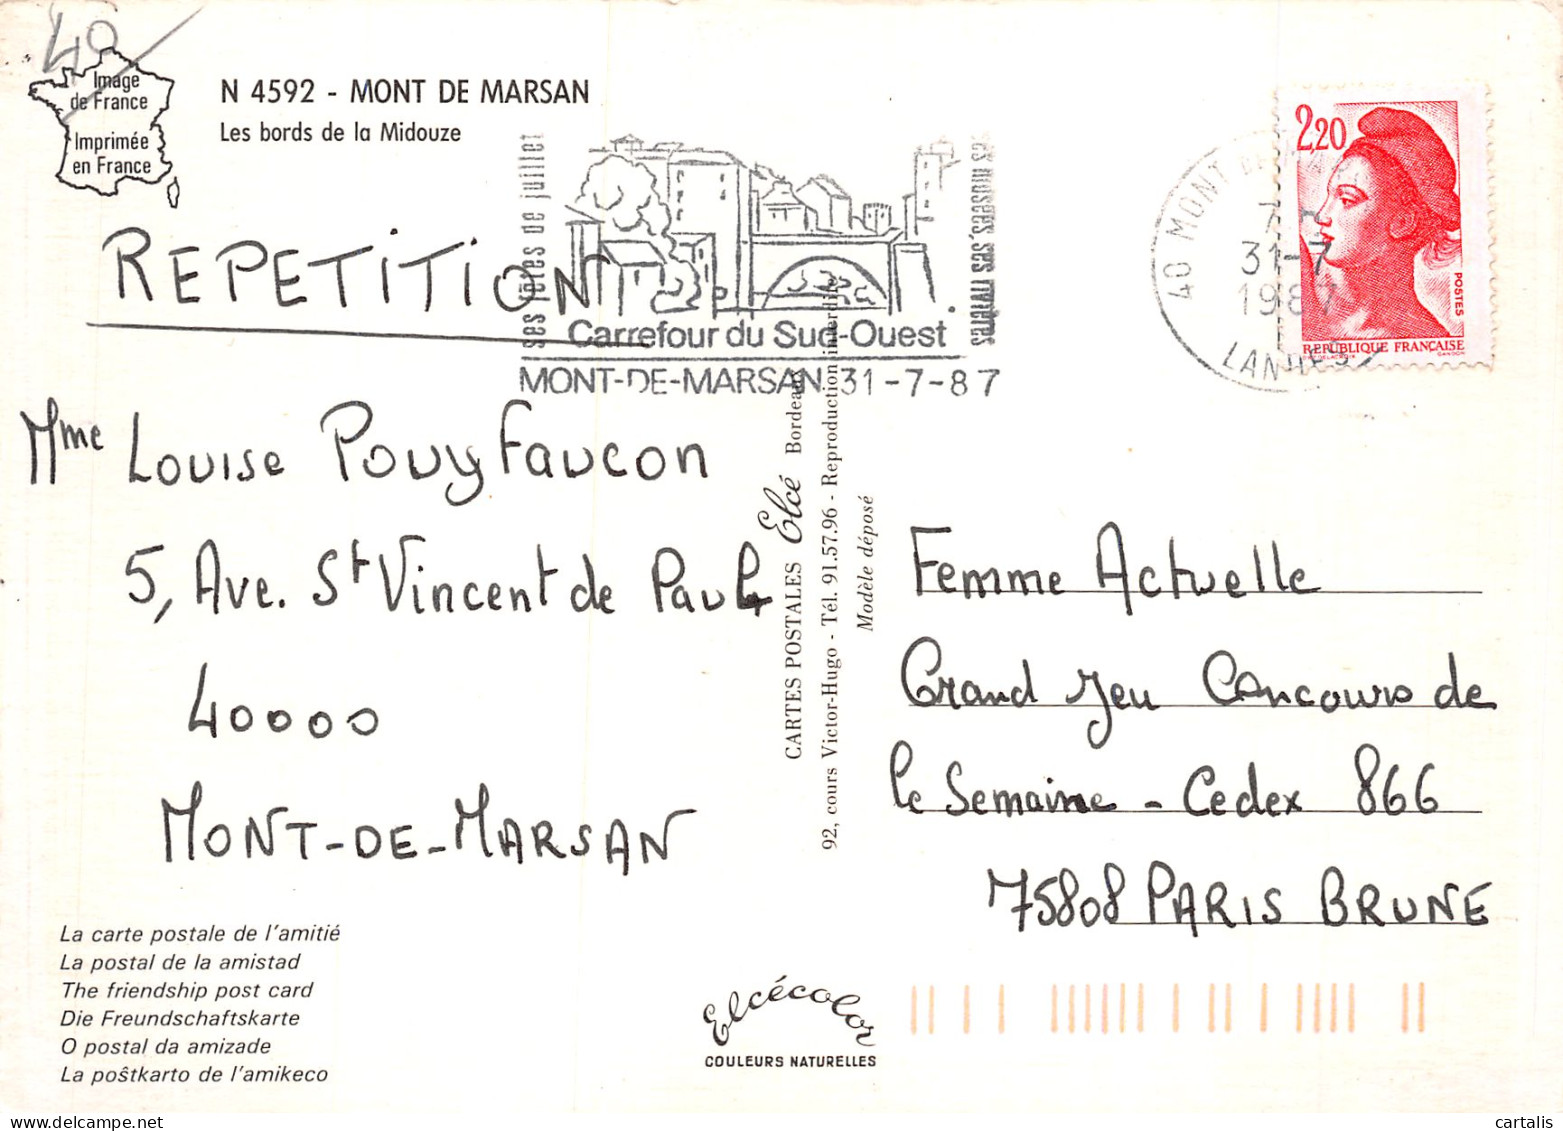 40
Image
de France
Imprimée
en France
N 4592 - MONT DE MARSAN
Les bords de la Midouze
REPETITION
ses fêtes de juillet
Carrefour du Sud-Ouest
ses musées, ses rivières
MONT-DE-MARSAN 31-7-87
40 MONT DE
31-7
1987
LANDES
2,20
POSTES
REPUBLIQUE FRANÇAISE
Mme Louise Pouyfaucon
5, Ave. St Vincent de Paul
40000
MONT-DE-MARSAN
CARTES POSTALES Elcé Bordeaux
92, cours Victor-Hugo - Tél. 91.57.96 - Reproduction interdite
Modèle déposé
Femme Actuelle
Grand Jeu Concours de
le Semaine - Cedex 866
75808 PARIS BRUNE
La carte postale de l'amitié
La postal de la amistad
The friendship post card
Die Freundschaftskarte
O postal da amizade
La poŝtkarto de l'amikeco
Elcécolor
COULEURS NATURELLES
cartalis